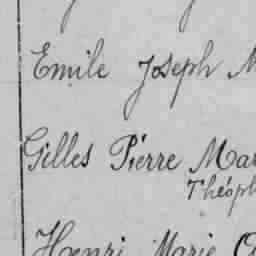 Emile Joseph M
Gilles Pierre Mar
Théoph
Henri Marie